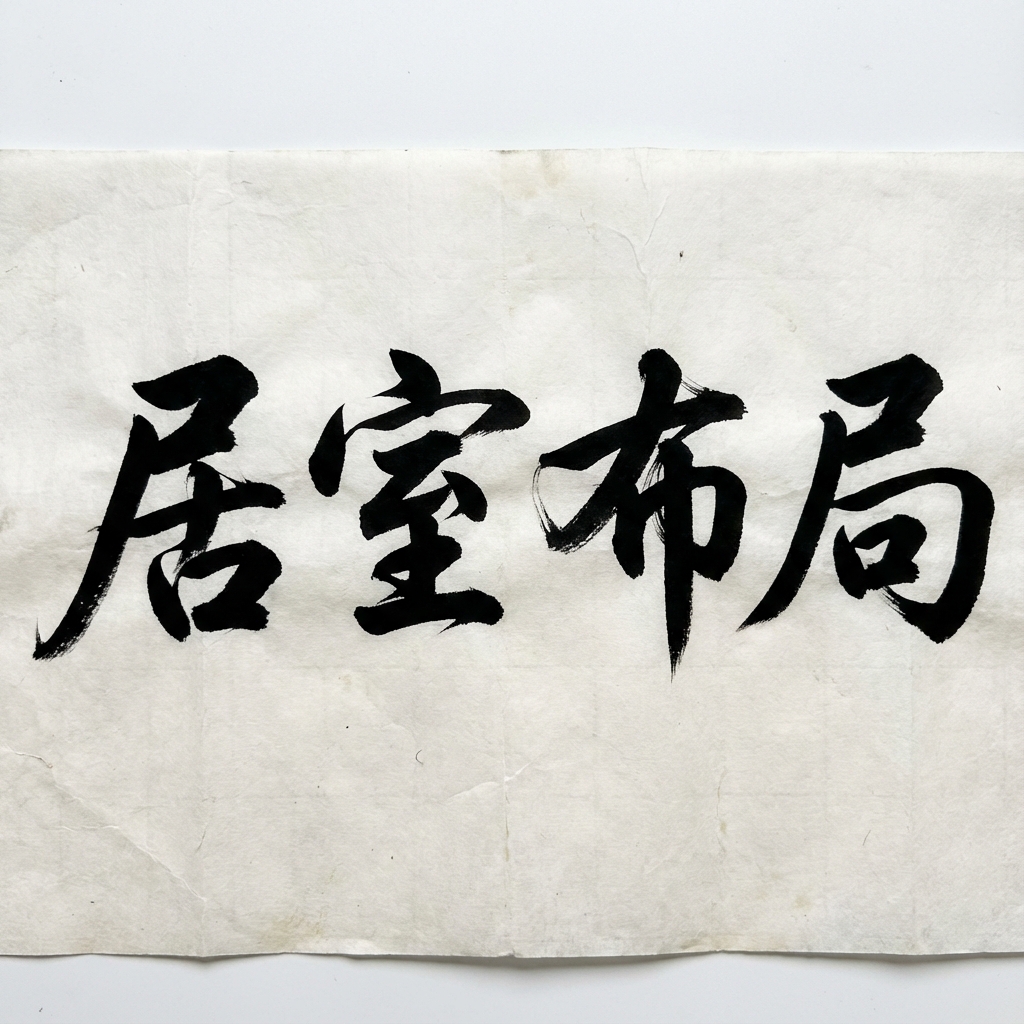 居室布局